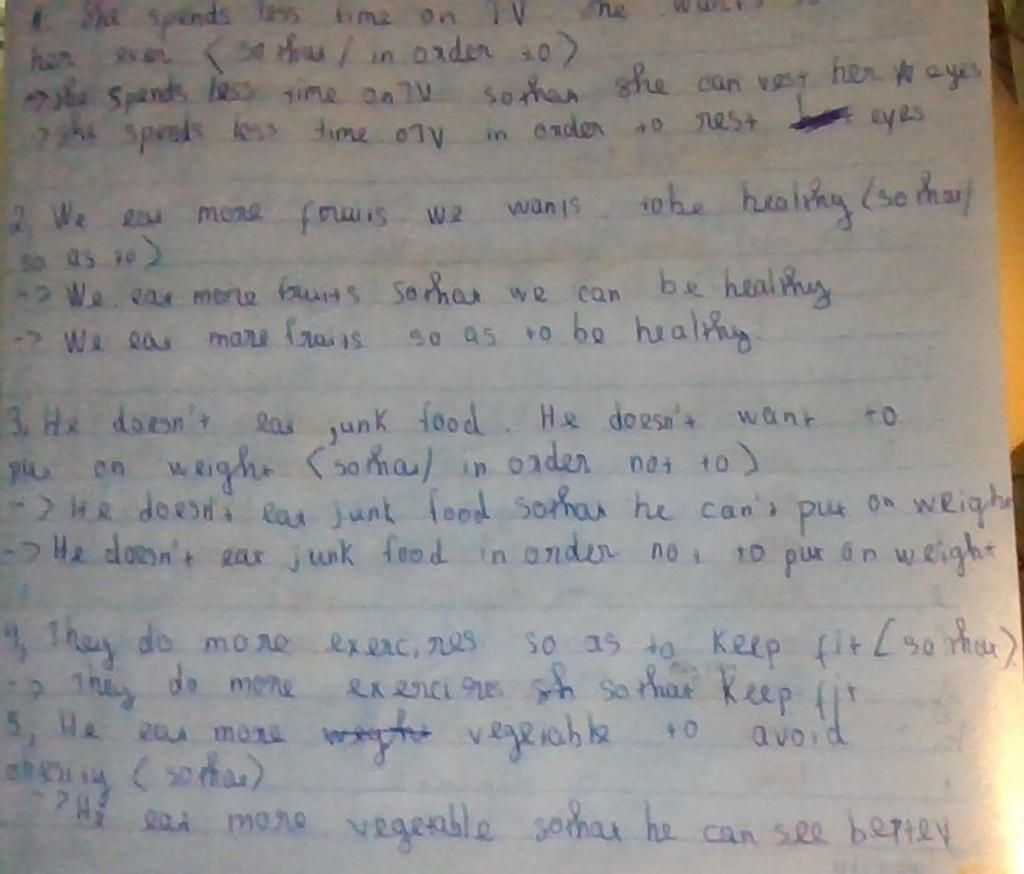 1. She spends less time on TV She wants to
her even (so that / in order to)
-> she spends less time on TV so that she can rest her eyes
-> she spends less time oTV in order to rest eyes
2, We eat more fruits we wants tobe healthy (so that /
so as to)
-> We eat more fruits so that we can be healthy
-> We eat more fruits so as to be healthy.
3, He doesn't eat junk food. He doesn't want to
put on weight (so that / in order not to)
-> He doesn't eat junk food so that he can't put on weight
-> He doesn't eat junk food in order not to put on weight
4, They do more exercises so as to keep fit (so that)
-> They do more exercises so that keep fit
5, He eat more vegetable to avoid
obesity (so that)
-> He eat more vegetable so that he can see better